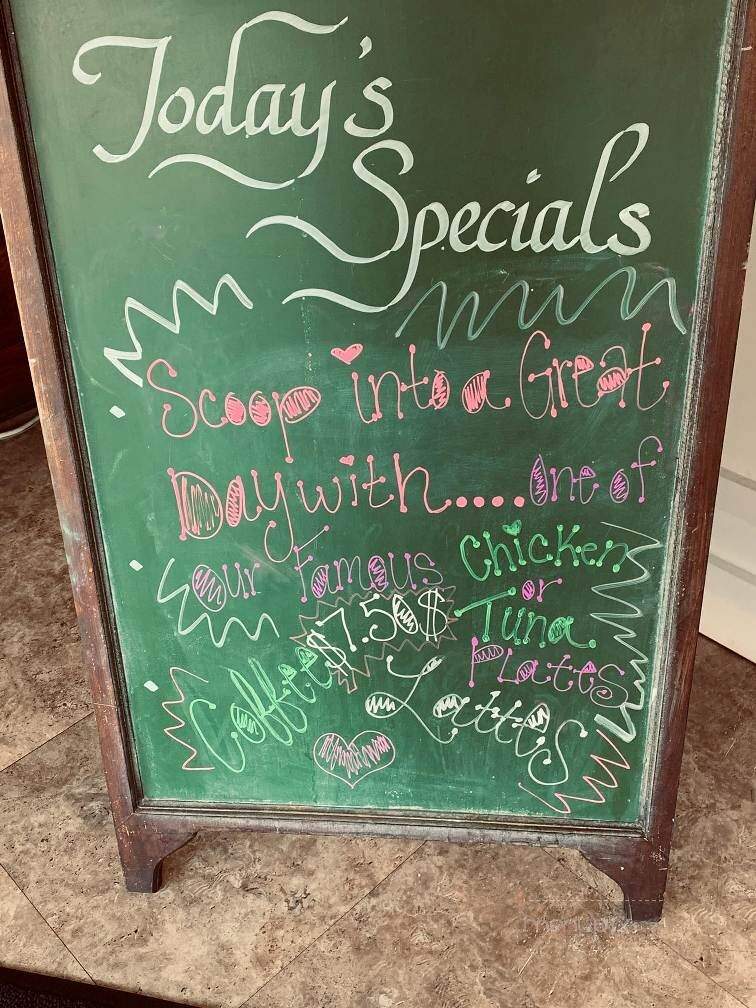 Today's
Specials
Scoop into a Great
Day with....One of
our famous Chicken
or
$7.50$ Tuna
Plates
Coffee Lattes